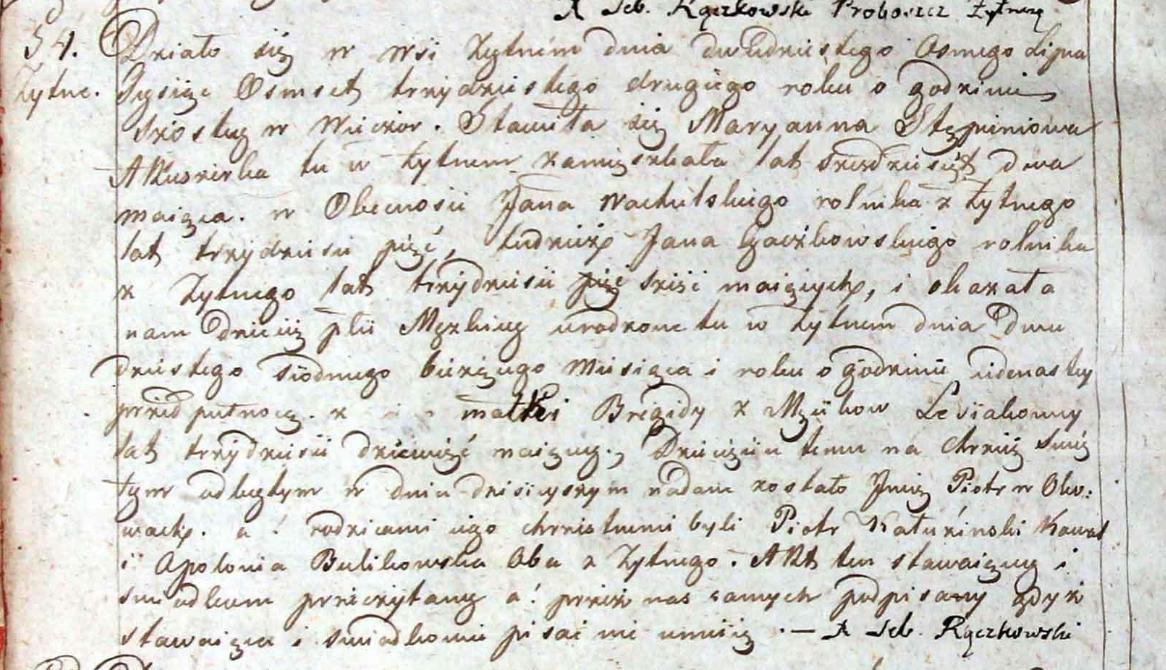 X Seb. Rączkowski Proboszcz Żytneg
54. Działo się w wsi Żytném dnia dwudziestego Osmego Lipca
Żytne. Tysiąc Osmset trzydziestego drugiego roku o godzinie
szostey w wieczor. Stawiła się Maryanna Stępniowa
Akuszerka tu w Żytnem zamięszkała lat sześdziesiąt dwa
maiąca. w Obecnosci Jana Machulskiego rolnika z Żytnego
lat trzydziesci pięć, tudzież Jana rolnika
z Żytnego lat trzydziesci pięć sześć maiących, i okazała
nam Dziecię płci Męzkiey urodzone tu w Żytnem dnia Dwu
dziestego siodmego bieżącego miesiąca i roku o godzinie iedenastey
przed pułnocą. z matki Brygidy z
lat trzydziesci dziewięć maiącey., Dziecięciu temu na chrzcie Swię
tym odbytym w dniu dzisieyszym nadane zostało Jmię Piotr w Oko:
wach. a: rodzicami iego chrzestnemi byli Piotr Kawal
i Apolonia Bulikowska Oba z Żytnego. Akt ten stawaiącey i
swiadkom przeczytany a: przez nas samych podpisany gdyż
stawaiąca i swiadkowie pisać nie umieią. — X Seb. Rączkowski